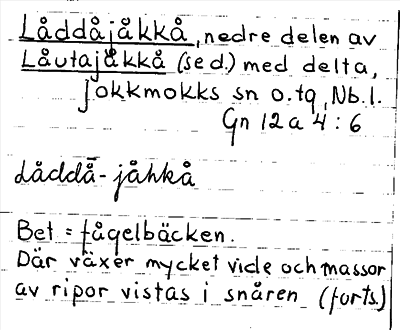 Låddåjåkkå, nedre delen av
Låutajåkkå (se d.) med delta,
Jokkmokks sn o. tg, Nb. l.
Gn 12 a 4 : 6
låddā̊ - jåhkå
Bet = fågelbäcken.
Där växer mycket vide och massor
av ripor vistas i snåren (forts.)